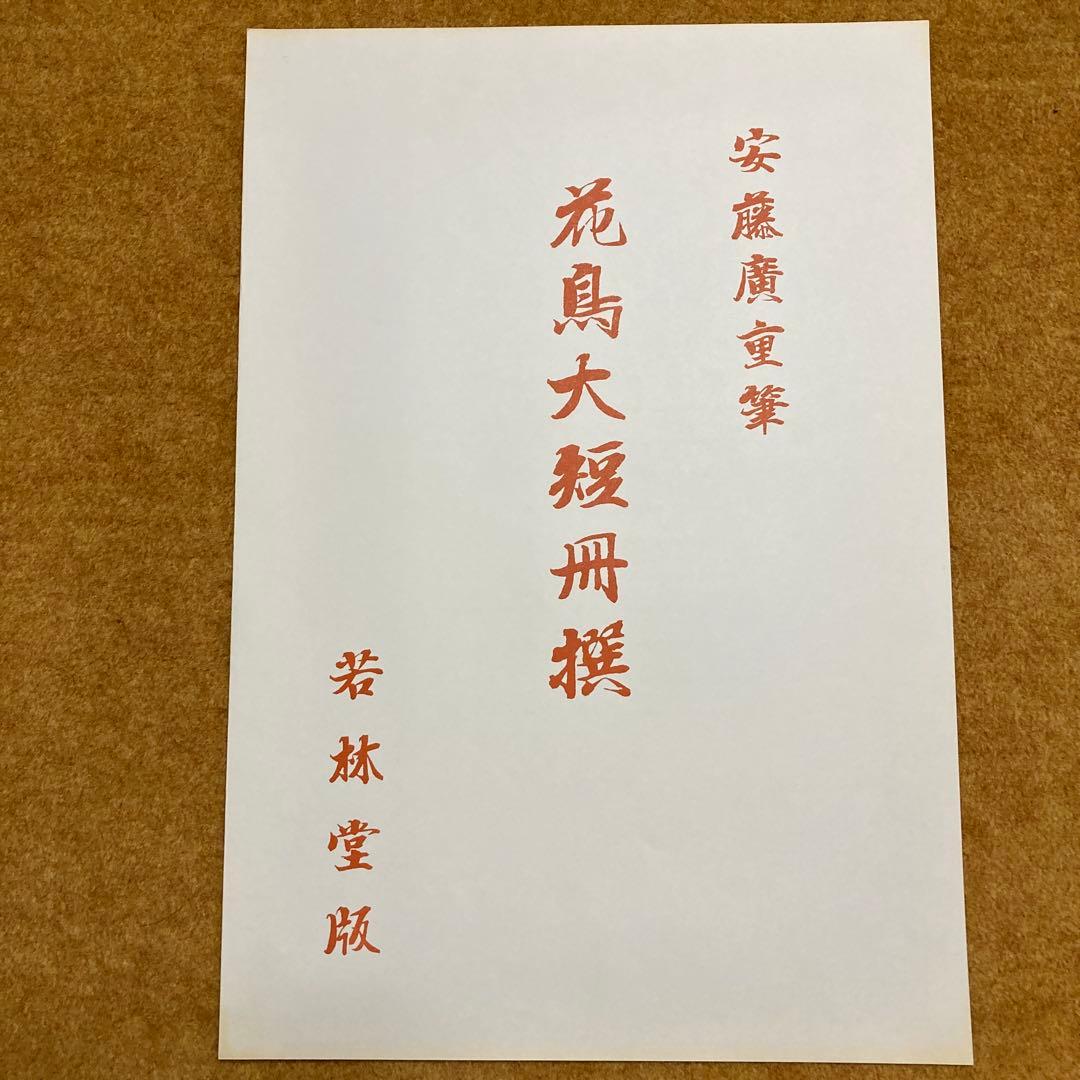 安藤廣重筆
花鳥大短冊撰
若林堂版